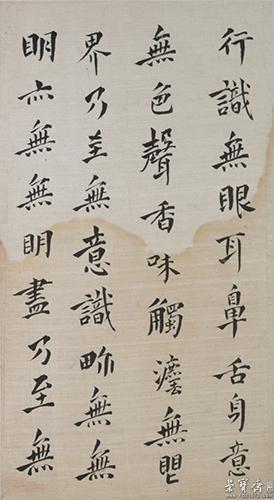 行識無眼耳鼻舌身意
無色聲香味觸灋無眼
界乃至無意識畍無無
明亦無無明盡乃至無